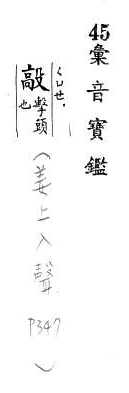 45彙音寶鑑
ㄑㄩㄝ.
敲擊頭也
(姜上入聲 P347)